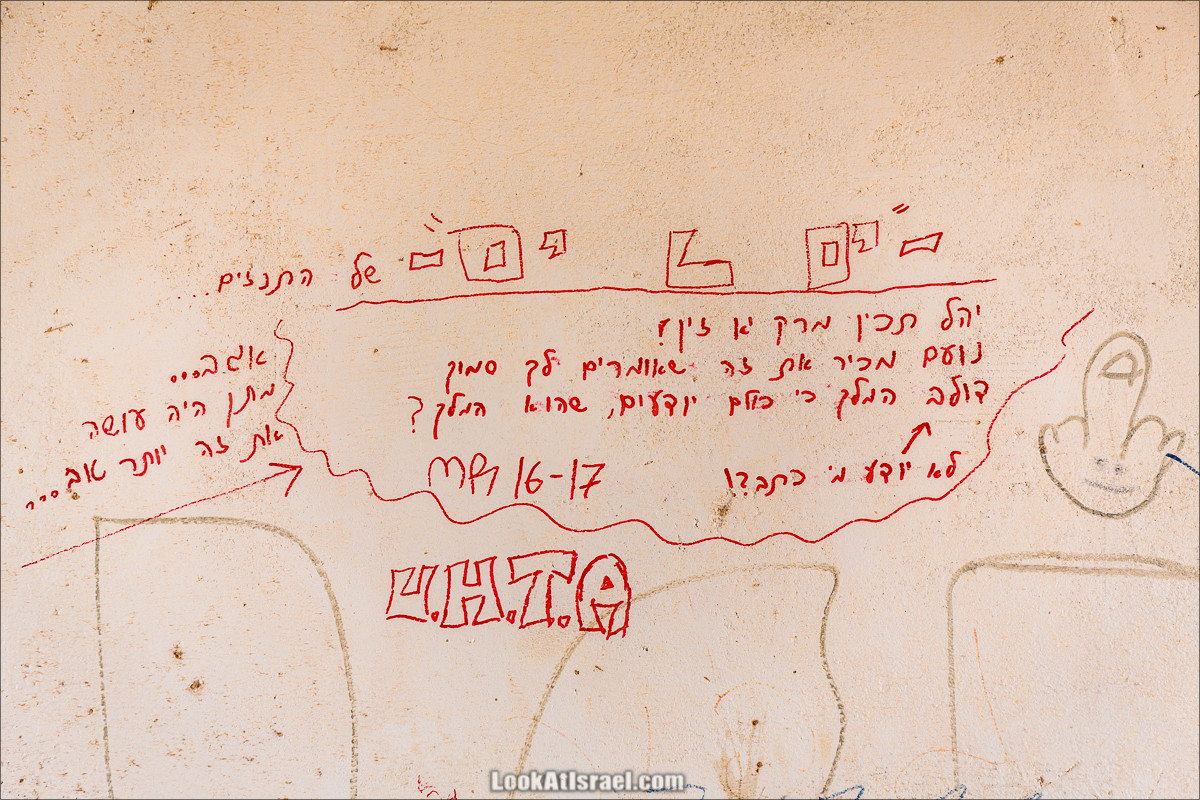 של התנזים...
יהל תכין מרק יא זין!
נועם מכיר את זה שאומרים לך סמוק
דולב המלך כי כולם יודעים, שהוא המלך?
לא יודע מי כתב?!
16-17
אגב...
מתן היה עושה
את זה יותר טוב...
U.H.T.A
LookAtIsrael.com